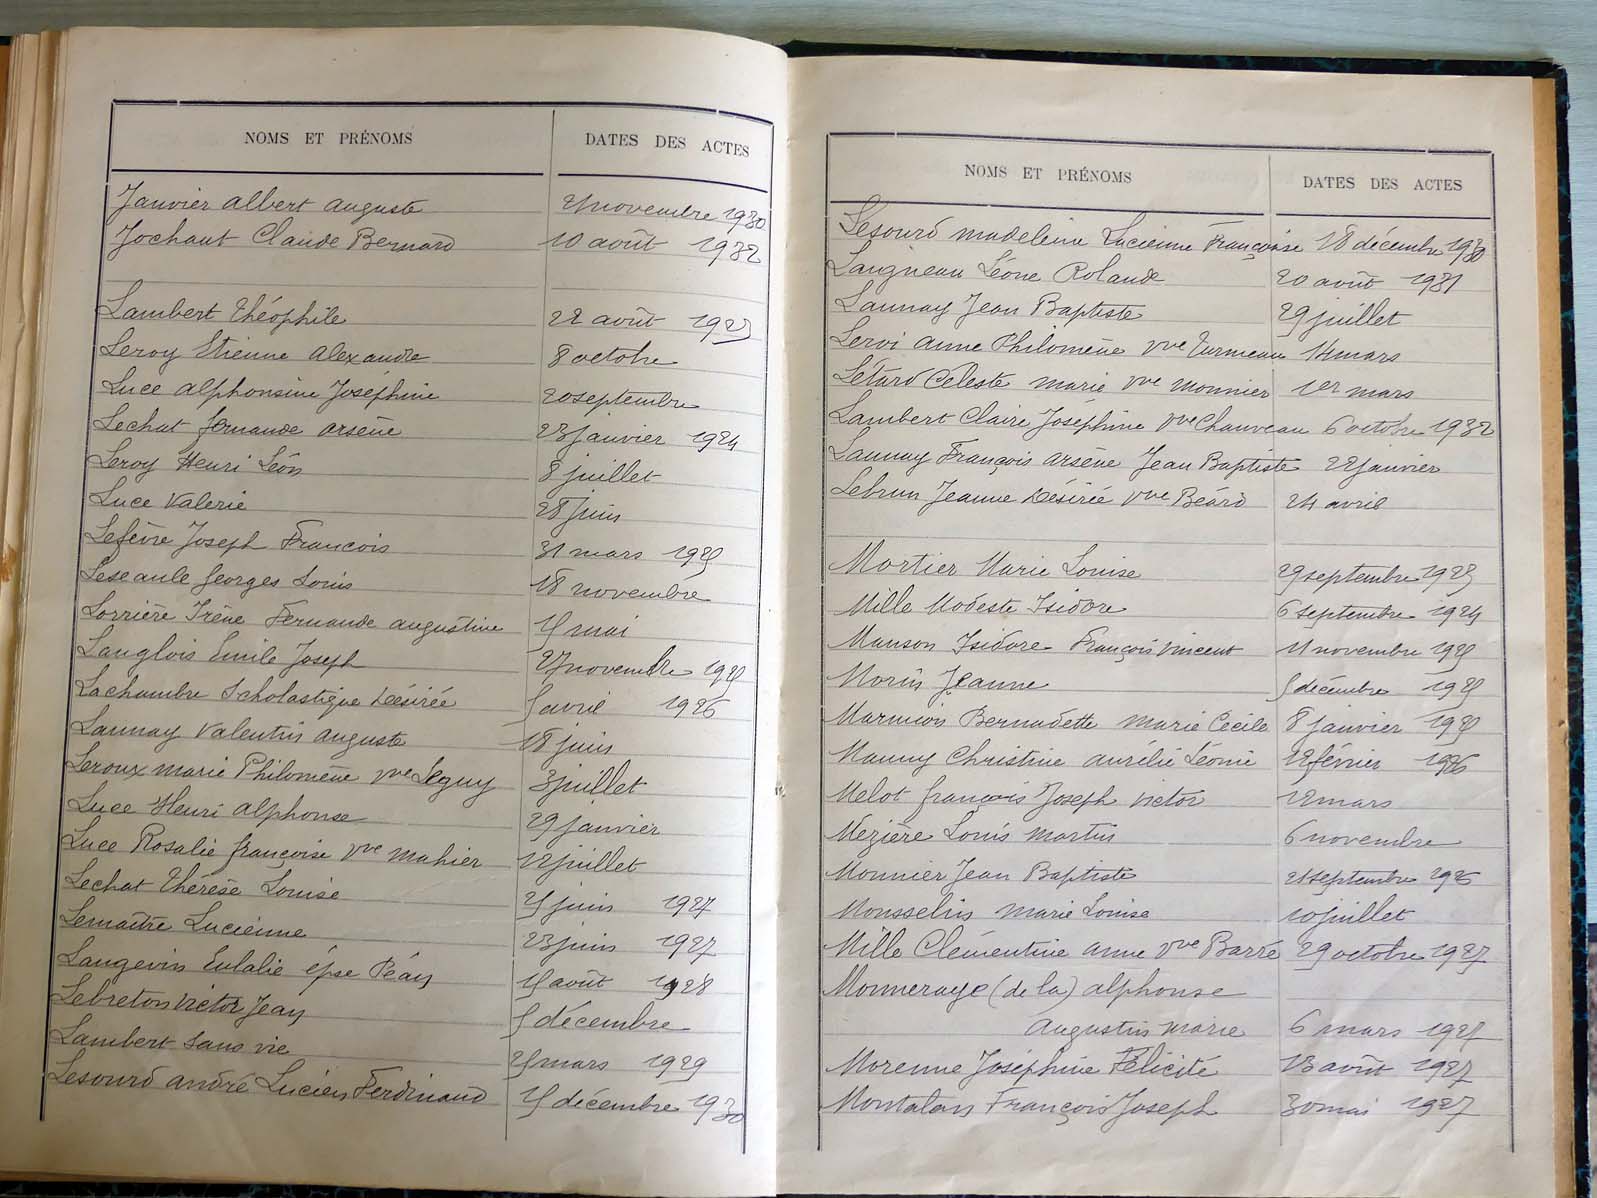 NOMS ET PRÉNOMS DATES DES ACTES
Janvier albert auguste novembre 1930
Jochaut Claude Bernard 10 août 1932
Lambert Théophile 22 août 1923
Leroy Etienne alexandre 8 octobre
Luce alphonsine Joséphine 20 septembre
Lechat fernande arsène 23 janvier 1924
Leroy Henri Léon 8 juillet
Luce Valerie 28 juin
Lefèvre Joseph François 31 mars 1925
Leseaule georges Louis 18 novembre
Lorrière Irène Fernande augustine 15 mai
Langlois Emile Joseph 27 novembre 1925
Lachambre Scholastique Désirée 5 avril 1926
Launay Valentin auguste 18 juin
Leroux marie Philomène vve Séguy 3 juillet
Luce Henri alphonse 29 janvier
Luce Rosalie françoise vve mahier 12 juillet
Lechat Thérèse Louise 25 juin 1927
Lemaître Lucienne 23 juin 1927
Langevin Eulalie épse Péan 15 août 1928
Lebreton victor Jean 5 décembre
Lambert sans vie 25 mars 1929
Lesourd andré Lucien Ferdinand 15 décembre 1930
NOMS ET PRÉNOMS DATES DES ACTES
Lesourd madeleine Lucienne Françoise 18 décembre 1930
Langneau Léone Rolande 20 août 1931
Launay Jean Baptiste 29 juillet
Leroi anne Philomène vve Turmeau 14 mars
Létard Céleste marie vve monnier 1er mars
Lambert Claire Joséphine vve Chauveau 6 octobre 1932
Launay François arsène Jean Baptiste 22 janvier
Lebrun Jeanne Désirée vve Béard 24 avril
Mortier Marie Louise 29 septembre 1923
Mille Modeste Isidore 6 septembre 1924
Manson Isidore François vincent 11 novembre 1925
Morin Jeanne 5 décembre 1925
Marmion Bernadette marie Cécile 8 janvier 1925
Mauny Christine aurélie Léonie 12 février 1926
Melot françois Joseph victor 12 mars
Mézière Louis martin 6 novembre
Monnier Jean Baptiste 21 septembre 1926
Mousselin marie Louise 10 juillet
Mille Clémentine anne vve Barré 29 octobre 1927
Monneraye (de la) alphonse
Augustin marie 6 mars 1927
Morenne Joséphine Félicité 13 août 1927
Montalan François Joseph 30 mai 1927